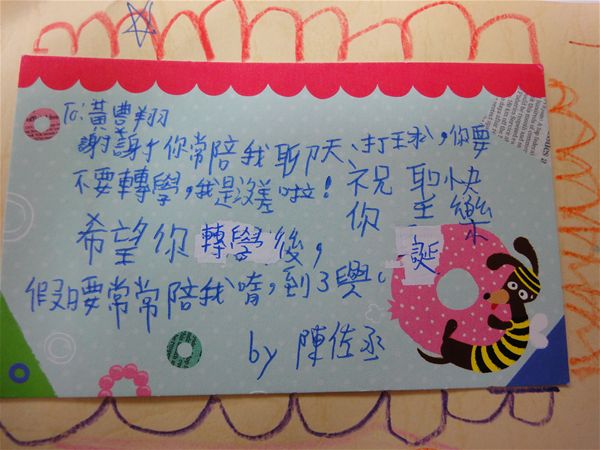 To:黃豊翔
謝謝你常陪我聊天、打王求,你要
不要轉學,我是沒差啦!祝 聖快
你 誕樂
希望你轉學後,
假日要常常陪我唷,到3與。
by 陳佐丞